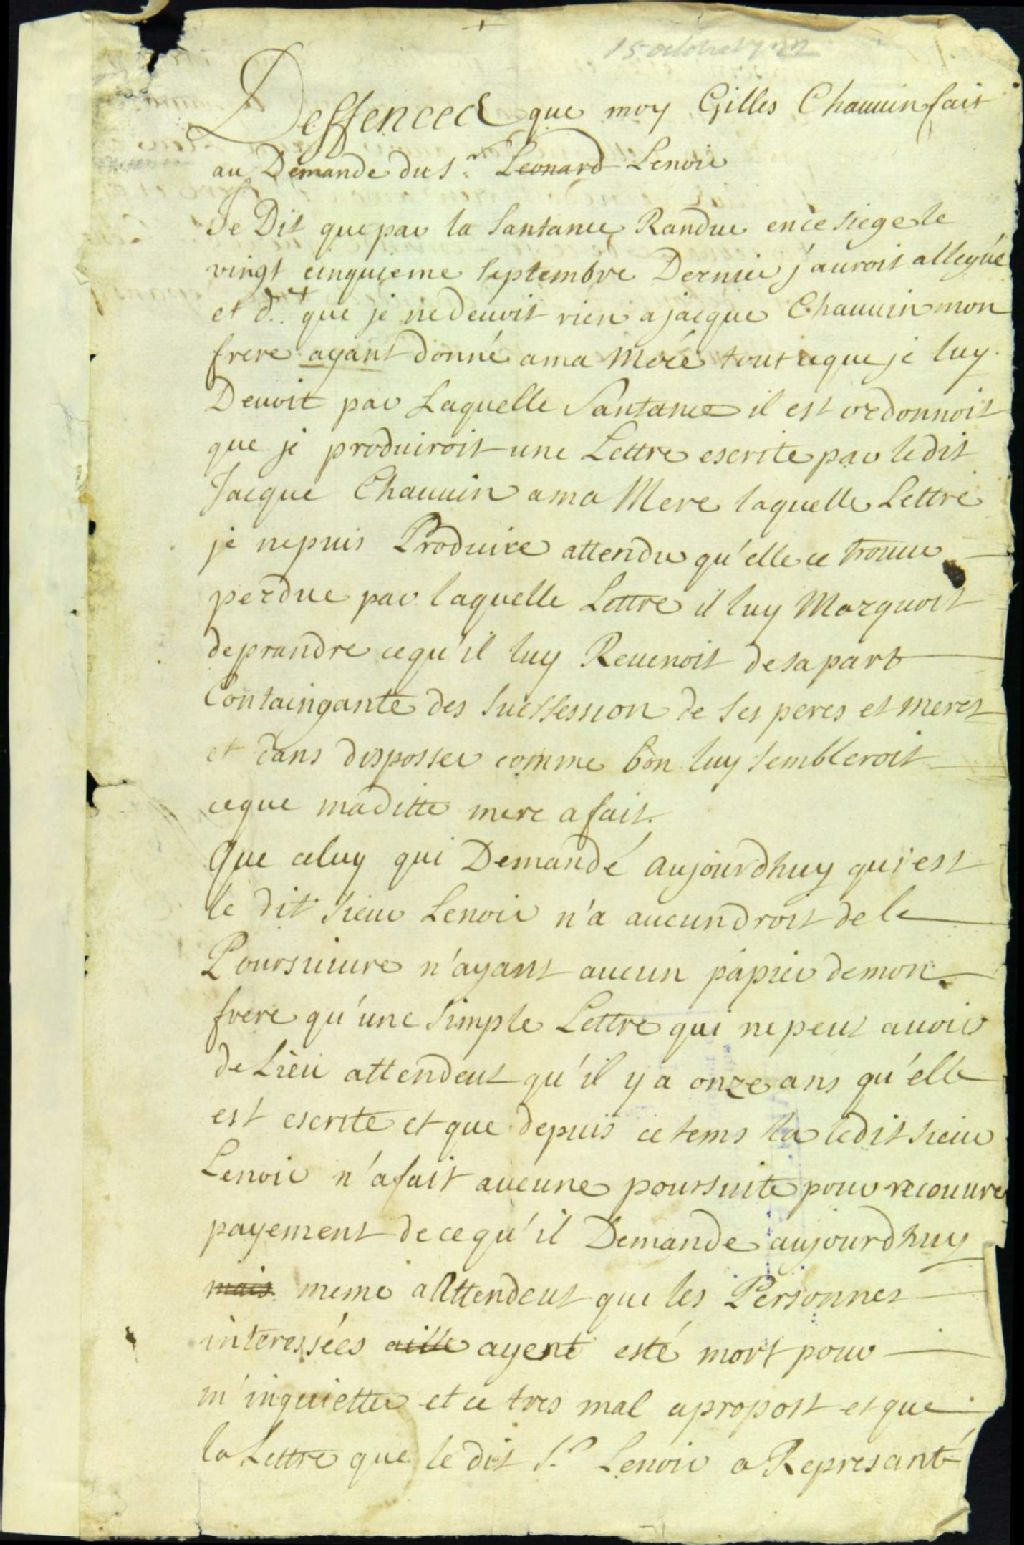 15 octobre 1722
Deffences que moy Gilles Chauuin fait
au Demande du Sr. Leonard Lenoir
Je Dit que par la Santance Randue en ce siege le
vingt cinquieme septembre Dernier j'auroit allegué
et d.t que je ne deuoit rien a jacque Chauuin mon
frere ayant donné a ma Mére tout ce que je luy
Deuoit par Laquelle Santance il est ordonnoit
que je produiroit une Lettre escrite par le dit
Jacque Chauuin a ma Mere laquelle Lettre
je ne puis Produire attendu qu'elle ce trouue
perdue par laquelle Lettre il luy Marquoit
de prandre ce qu'il luy Reuenoit de sa part
Containgante des Suessession de ses peres et meres
et dans disposser comme bon luy sembleroit
ce que maditte mere a fait.
Que celuy qui Demandé aujourdhuy qui est
le dit sieur Lenoir n'a aucun droit de le
Poursuiure n'ayant aucun papier de mon
frere qu'une simple Lettre qui ne peut auoir
de Lieu attendeut qu'il y a onze ans qu'elle
est escrite et que depuis ce tems la ledit sieur
Lenoir n'a fait aucune poursuite pour recouure
payement de ce qu'il Demande aujourdhuy
mais meme attendeut que les Personnes
interessées aille ayent esté mort pour
m'inquietter et ce tres mal apropost et que
la Lettre que le dit Sr. Lenoir a Represanté